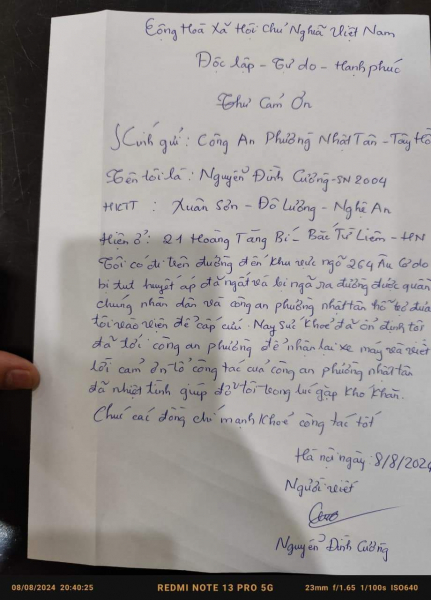 Cộng Hoà Xã Hội Chủ Nghĩa Việt Nam
Độc lập - Tự do - Hạnh phúc
Thư Cám Ơn
Kính gửi : Công An Phường Nhật Tân - Tây Hồ
Tên tôi là : Nguyễn Đình Cường - SN 2004
HKTT : Xuân Sơn - Đô Lương - Nghệ An
Hiện ở : 21 Hoàng Tăng Bí - Bắc Từ Liêm - HN
Tôi có đi trên đường đến khu vực ngõ 264 Âu Cơ do
bị tụt huyết áp đã ngất và bị ngã ra đường được quần
chúng nhân dân và công an phường nhật tân hỗ trợ đưa
tôi vào viện để cấp cứu. Nay sức khoẻ đã ổn định tôi
đã tới công an phường để nhận lại xe máy và viết
lời cảm ơn tổ công tác của công an phường nhật tân
đã nhiệt tình giúp đỡ tôi trong lúc gặp khó khăn.
Chúc các đồng chí mạnh khoẻ công tác tốt
Hà nội ngày 8/8/2024
Người viết
Nguyễn Đình Cường
08/08/2024 20:40:25 REDMI NOTE 13 PRO 5G 23mm f/1.65 1/100s ISO640